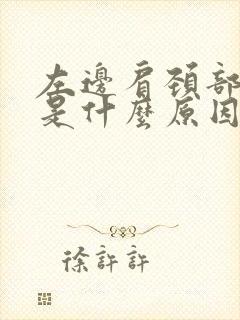 左邊肩頸部
是什麼原因
徐許許